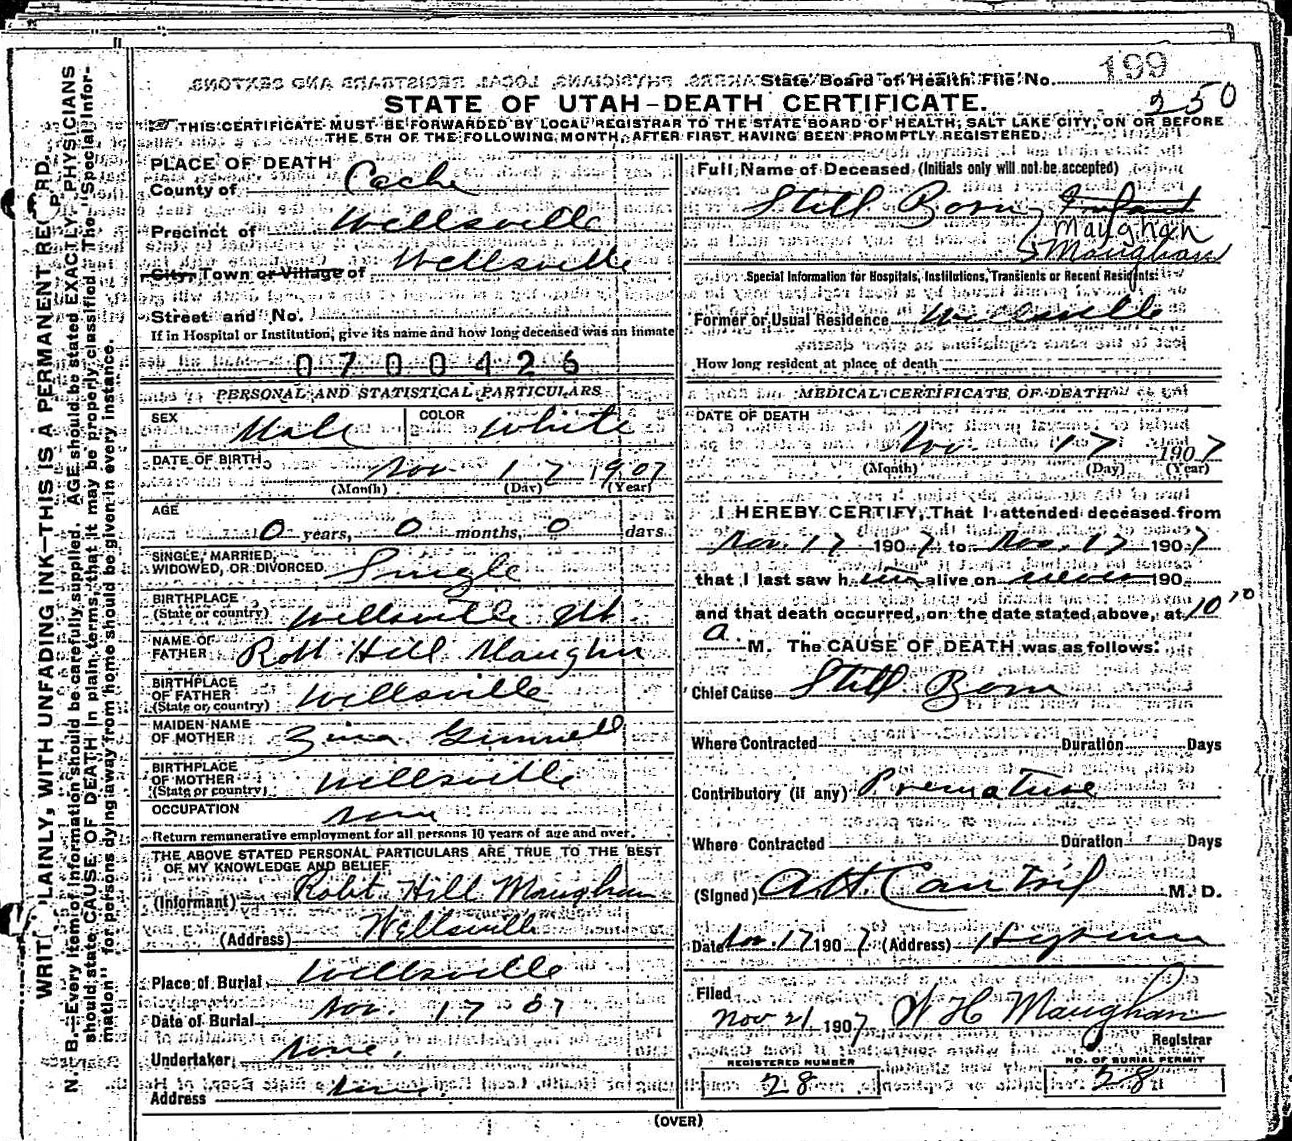 State Board of Health File No. 199
STATE OF UTAH—DEATH CERTIFICATE.
250
THIS CERTIFICATE MUST BE FORWARDED BY LOCAL REGISTRAR TO THE STATE BOARD OF HEALTH, SALT LAKE CITY, ON OR BEFORE
THE 5TH OF THE FOLLOWING MONTH, AFTER FIRST HAVING BEEN PROMPTLY REGISTERED.
WRITE PLAINLY, WITH UNFADING INK—THIS IS A PERMANENT RECORD.
N. B.—Every item of information should be carefully supplied. AGE should be stated EXACTLY. PHYSICIANS
should state CAUSE OF DEATH in plain terms, that it may be properly classified. The "Special Infor-
mation" for persons dying away from home should be given in every instance.
PLACE OF DEATH
County of Cache
Precinct of Wellsville
City, Town or Village of Wellsville
Street and No.
If in Hospital or Institution, give its name and how long deceased was an inmate
0700426
PERSONAL AND STATISTICAL PARTICULARS
SEX Male COLOR White
DATE OF BIRTH Nov 17 1907
(Month) (Day) (Year)
AGE
0 years, 0 months, 0 days
SINGLE, MARRIED,
WIDOWED, OR DIVORCED Single
BIRTHPLACE
(State or country) Wellsville Ut.
NAME OF
FATHER Robt Hill Maughn
BIRTHPLACE
OF FATHER Wellsville
(State or country)
MAIDEN NAME
OF MOTHER Zina Gunnell
BIRTHPLACE
OF MOTHER Wellsville
(State or country)
OCCUPATION none
Return remunerative employment for all persons 10 years of age and over.
THE ABOVE STATED PERSONAL PARTICULARS ARE TRUE TO THE BEST
OF MY KNOWLEDGE AND BELIEF
(Informant) Robt Hill Maughan
(Address) Wellsville
Place of Burial Wellsville
Date of Burial Nov. 17 07
Undertaker none.
Address none
Full Name of Deceased (Initials only will not be accepted)
Still Born Infant
Maughan
Maughan
Special Information for Hospitals, Institutions, Transients or Recent Residents:
Former or Usual Residence Wellsville
How long resident at place of death
MEDICAL CERTIFICATE OF DEATH
DATE OF DEATH
Nov. 17 1907
(Month) (Day) (Year)
I HEREBY CERTIFY, That I attended deceased from
Nov. 17 1907 to Nov. 17 1907
that I last saw him alive on never 190
and that death occurred, on the date stated above, at 10 10
a. M. The CAUSE OF DEATH was as follows:
Chief Cause Still Born
Where Contracted Duration Days
Contributory (if any) Premature
Where Contracted Duration Days
(Signed) M. D.
Date Nov. 17 1907 (Address) Hyrum
Filed
Nov 21 1907 W H Maughan
Registrar
REGISTERED NUMBER NO. OF BURIAL PERMIT
28 28
(OVER)